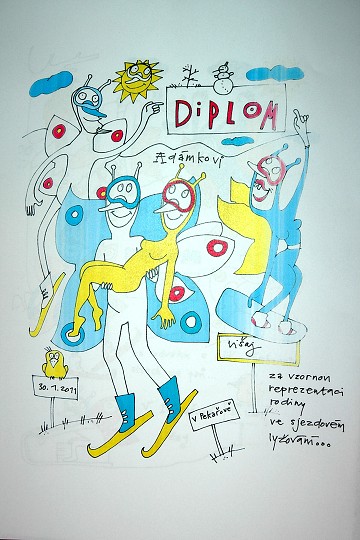 DiPLOM
Adámkovi
višaj
30.1.2011
v Pekařově
za vzornou
reprezentaci
rodiny
ve sjezdovém
lyžování...